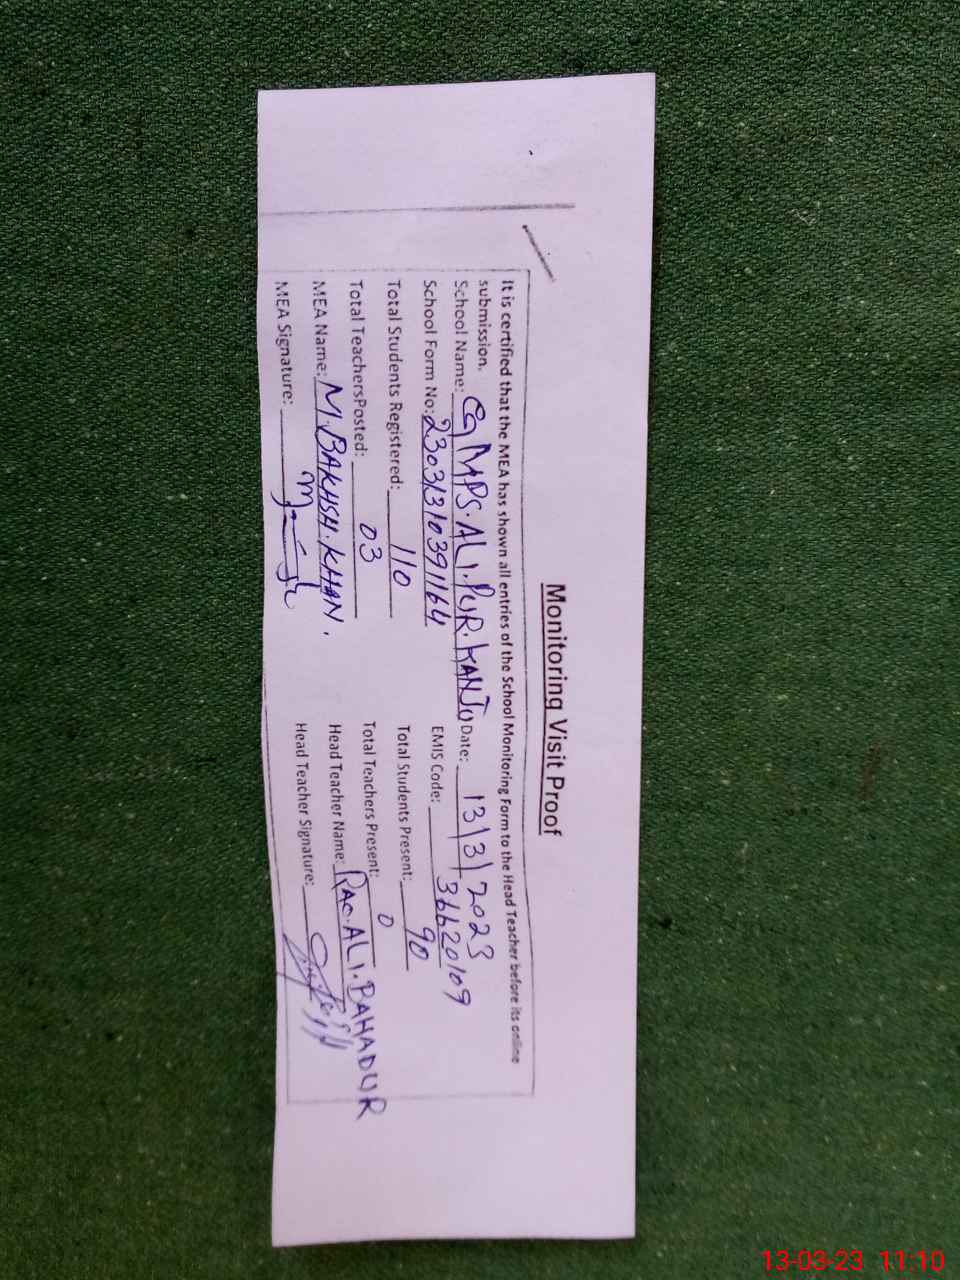 Monitoring Visit Proof
It is certified that the MEA has shown all entries of the School Monitoring Form to the Head Teacher before its online
submission.
School Name: GMPS.ALI.PUR.KANJU Date: 13/3/2023
School Form No: 23031310391164 EMIS Code: 36620109
Total Students Registered: 110 Total Students Present: 90
Total TeachersPosted: 03 Total Teachers Present: 0
MEA Name: M.BAKHSH.KHAN. Head Teacher Name: RAO.ALI.BAHADUR
MEA Signature: Head Teacher Signature:
13-03-23 11:10